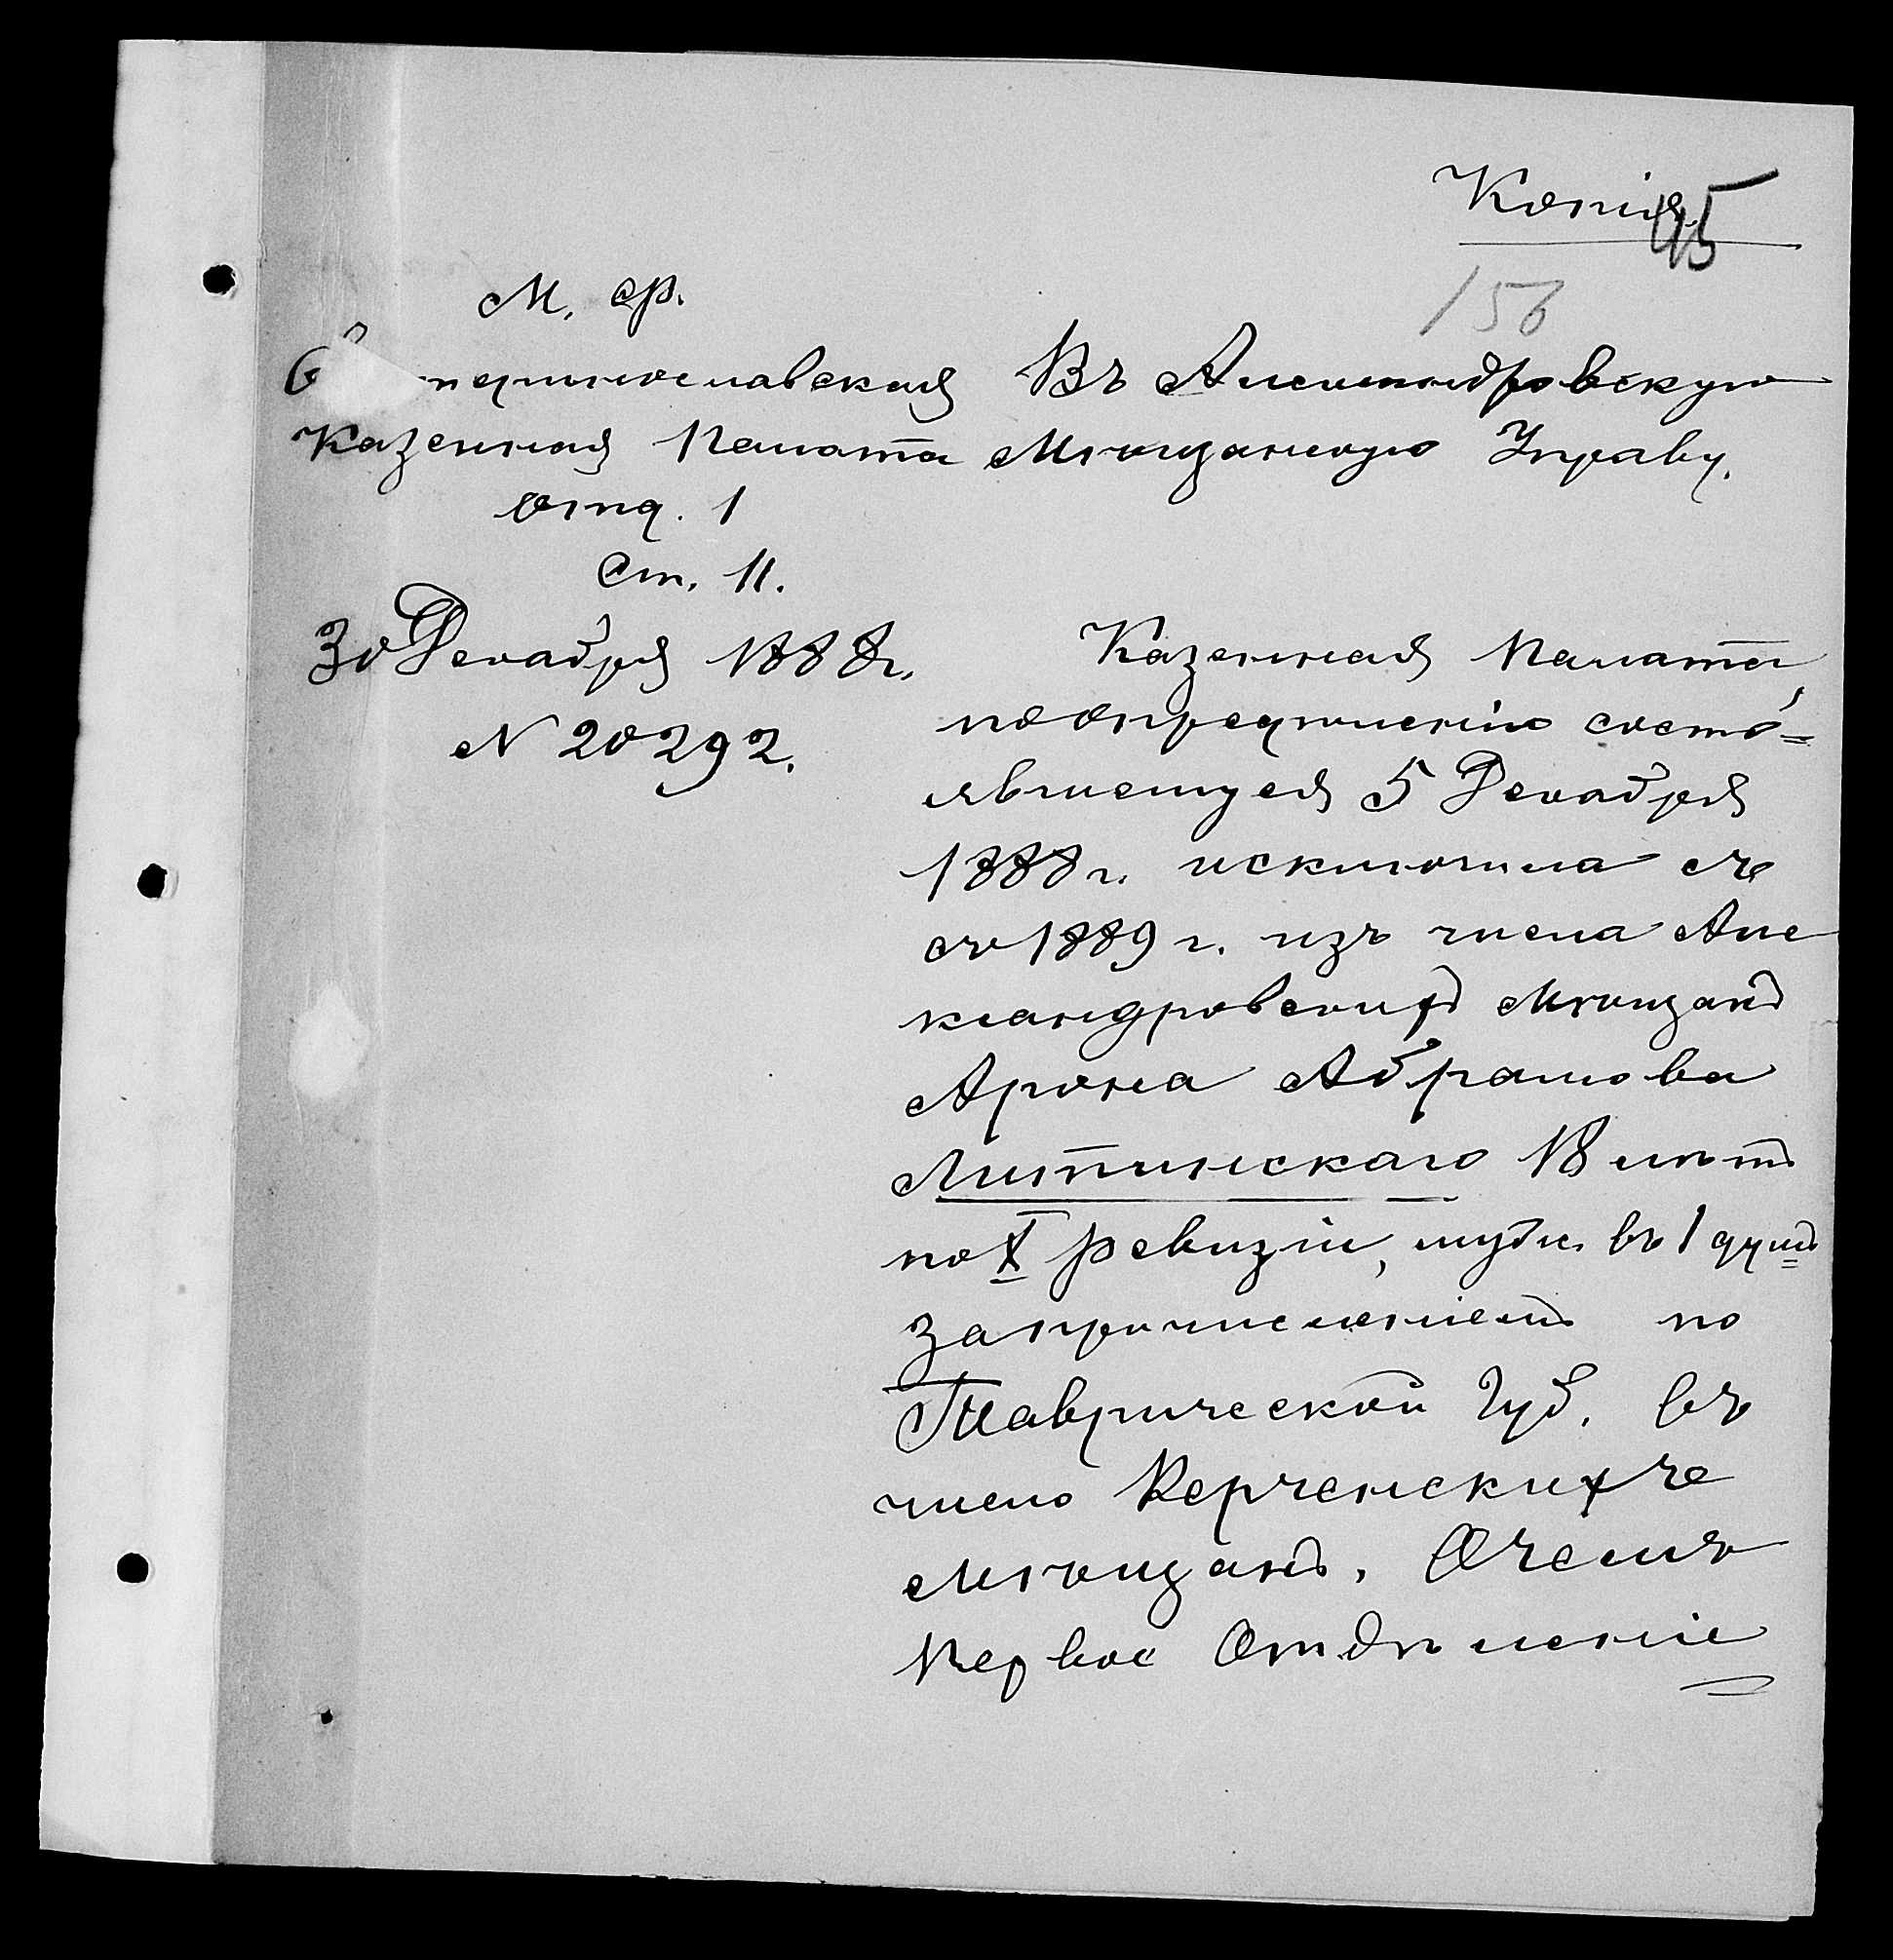 Копія
45
156
М. Ф.
Е теринославская
Казенная Палата
Отд. 1
Ст. 11.
30 Декабря 1888 г.
N 20292.
Въ Александровскую
Мѣщанскую Управу.
Казенная Палата,
по опредѣленію состо=
явшемуся 5 Декабря
1888 г. исключила съ
съ 1889 г. изъ числа Але
ксандровскихъ Мѣщанъ
Арона Абрамова
Литинскаго 18 лѣтъ
по X ревизіи, въ 1 душѣ
За причисленіемъ по
Таврической Губ. въ
число Керченскихъ
Мѣщанъ. О чемъ
Первое Отдѣленіе